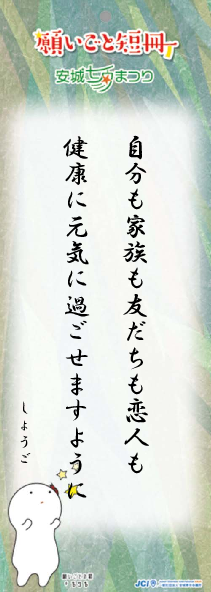 願いごと短冊
安城七夕まつり
自分も家族も友だちも恋人も
健康に元気に過ごせますように
しょうご
JCI